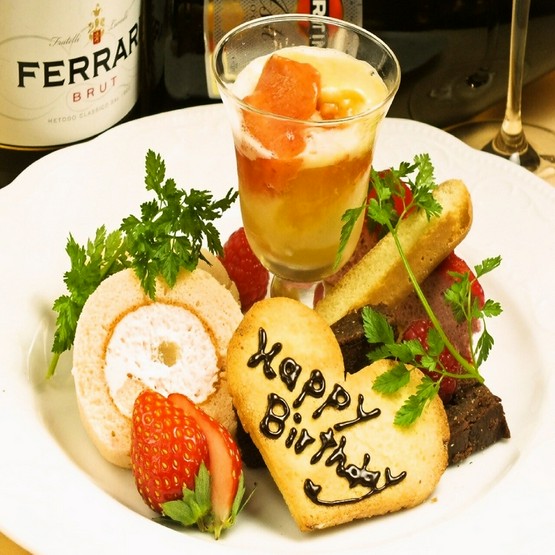 Fratelli Lunelli
FERRAR
BRUT
METODO CLASSICO
RTIN
Happy
Birthday